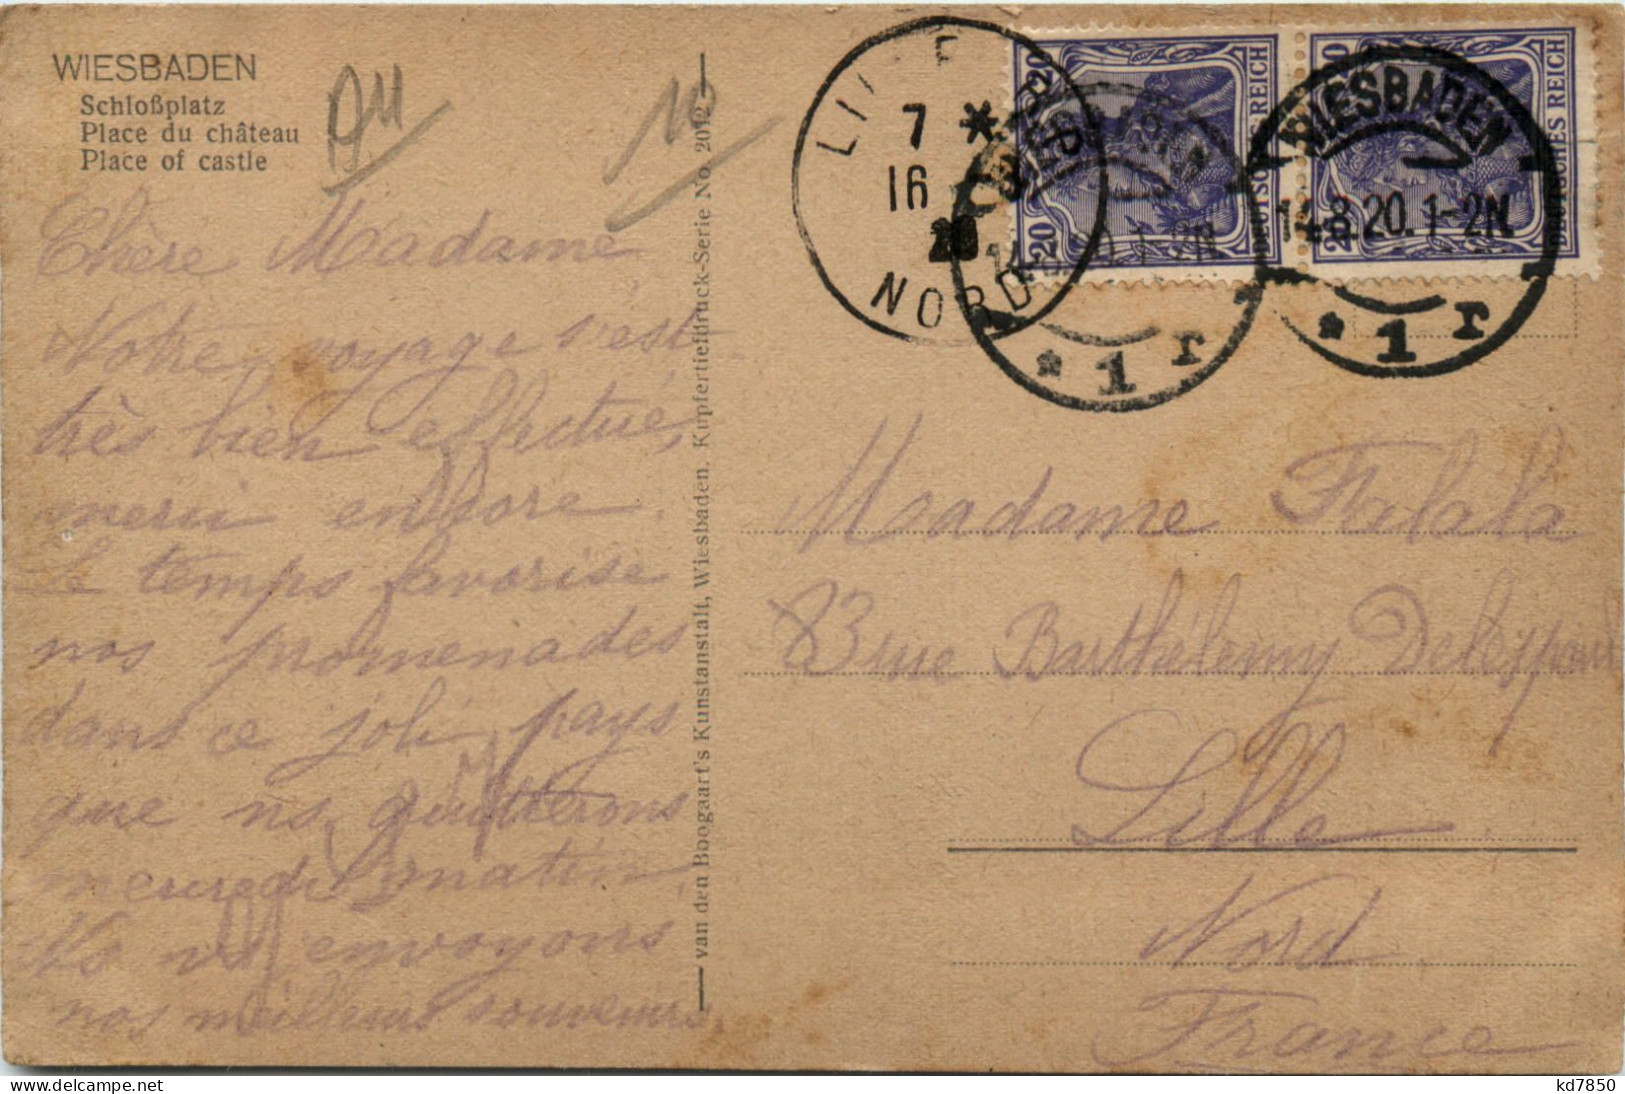 WIESBADEN
Schloßplatz
Place du château
Place of castle
Chère Madame
Notre voyage s'est
très bien effectué,
merci encore.
Le temps favorise
nos promenades
dans ce joli pays
que ns quitterons
mercredi matin.
Ns vs envoyons
nos meilleurs souvenirs.
van den Boogaart's Kunstanstalt, Wiesbaden. Kupfertiefdruck-Serie No. 2012
7
16
20
NORD
DEUTSCHES REICH
20
WIESBADEN
14.8.20. 1-2N.
* 1 r
DEUTSCHES REICH
20
WIESBADEN
* 1 r
Madame
83 rue Barthélemy Delespaul
Lille
Nord
France
kd7850